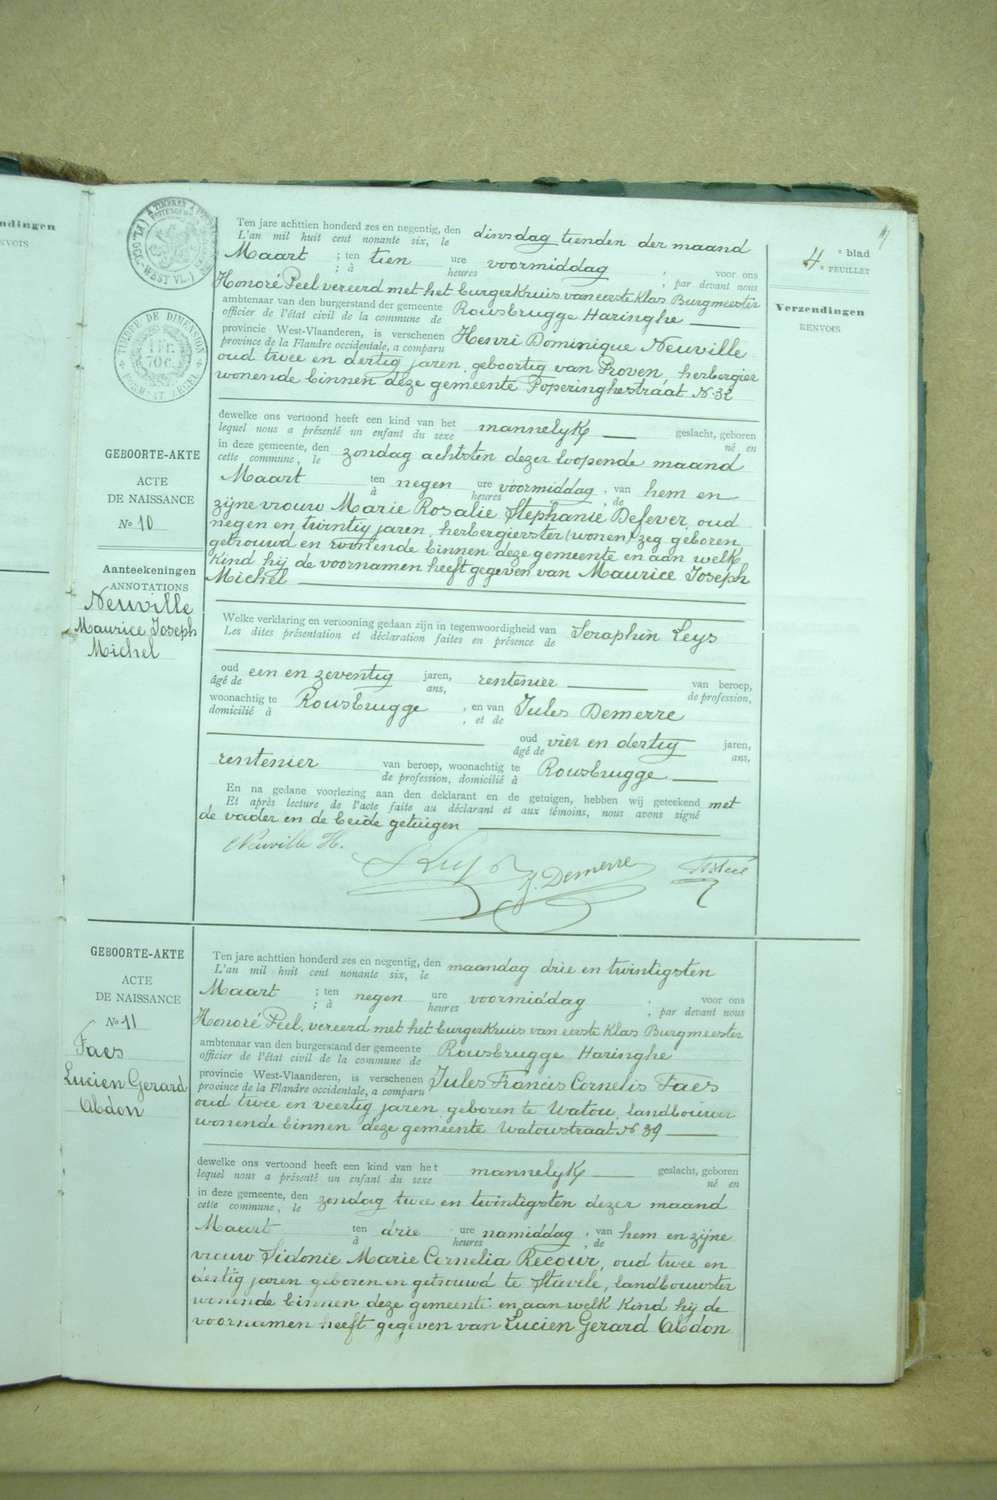 ndingen
NVOIS
TIMBRE DE DIMENSION
GEBOORTE-AKTE
ACTE
DE NAISSANCE
No 10
Aanteekeningen
ANNOTATIONS
Neuville
Maurice Joseph
Michel
4e blad
e FEUILLET
Verzendingen
RENVOIS
Ten jare achttien honderd zes en negentig, den dinsdag tienden der maand
L'an mil huit cent nonante six, le
Maart ; ten tien ure voormiddag ; voor ons
; à heures ; par devant nous
Honoré Peel vereerd met het burgerkruis van eerste klas Burgmeester
ambtenaar van den burgerstand der gemeente Rousbrugge Haringhe
officier de l'état civil de la commune de
provincie West-Vlaanderen, is verschenen Henri Dominique Neuville
province de la Flandre occidentale, a comparu
oud twee en dertig jaren, geboortig van Proven, herbergier
wonende binnen deze gemeente Poperinghestraat No 32
dewelke ons vertoond heeft een kind van het mannelyk geslacht, geboren
lequel nous a présenté un enfant du sexe né en
in deze gemeente, den zondag achtsten dezer loopende maand
cette commune, le
Maart ten negen ure voormiddag, van hem en
à heures , de
zijne vrouw Marie Rosalie Stephanie Defever, oud
negen en twintig jaren, herbergierster (wonen) zeg geboren
getrouwd en wonende binnen deze gemeente en aan welk
Kind hij de voornamen heeft gegeven van Maurice Joseph
Michel
Welke verklaring en vertooning gedaan zijn in tegenwoordigheid van Seraphin Leys
Les dites présentation et déclaration faites en présence de
oud een en zeventig jaren, rentenier van beroep,
âgé de ans, de profession,
woonachtig te Rousbrugge , en van Jules Demerre
domicilié à , et de
oud vier en dertig jaren,
âgé de ans,
rentenier van beroep, woonachtig te Rousbrugge
de profession, domicilié à
En na gedane voorlezing aan den deklarant en de getuigen, hebben wij geteekend met
Et après lecture de l'acte faite au déclarant et aux témoins, nous avons signé
de vader en de beide getuigen
Neuville H.
J. Demerre
GEBOORTE-AKTE
ACTE
DE NAISSANCE
No 11
Faes
Lucien Gerard
Abdon
Ten jare achttien honderd zes en negentig, den maandag drie en twintigsten
L'an mil huit cent nonante six, le
Maart ; ten negen ure voormiddag ; voor ons
; à heures ; par devant nous
Honoré Peel, vereerd met het burgerkruis van eerste klas Burgmeester
ambtenaar van den burgerstand der gemeente Rousbrugge Haringhe
officier de l'état civil de la commune de
provincie West-Vlaanderen, is verschenen Jules Francis Cornelis Faes
province de la Flandre occidentale, a comparu
oud twee en veertig jaren geboren te Watou, landbouwer
wonende binnen deze gemeente Watoustraat No 39
dewelke ons vertoond heeft een kind van het mannelyk geslacht, geboren
lequel nous a présenté un enfant du sexe né en
in deze gemeente, den zondag twee en twintigsten dezer maand
cette commune, le
Maart ten drie ure namiddag, van hem en zijne
à heures , de
vrouw Sidonie Marie Cornelia Recour, oud twee en
dertig jaren geboren en getrouwd te Stavele, landbouwster
wonende binnen deze gemeente en aan welk Kind hij de
voornamen heeft gegeven van Lucien Gerard Abdon